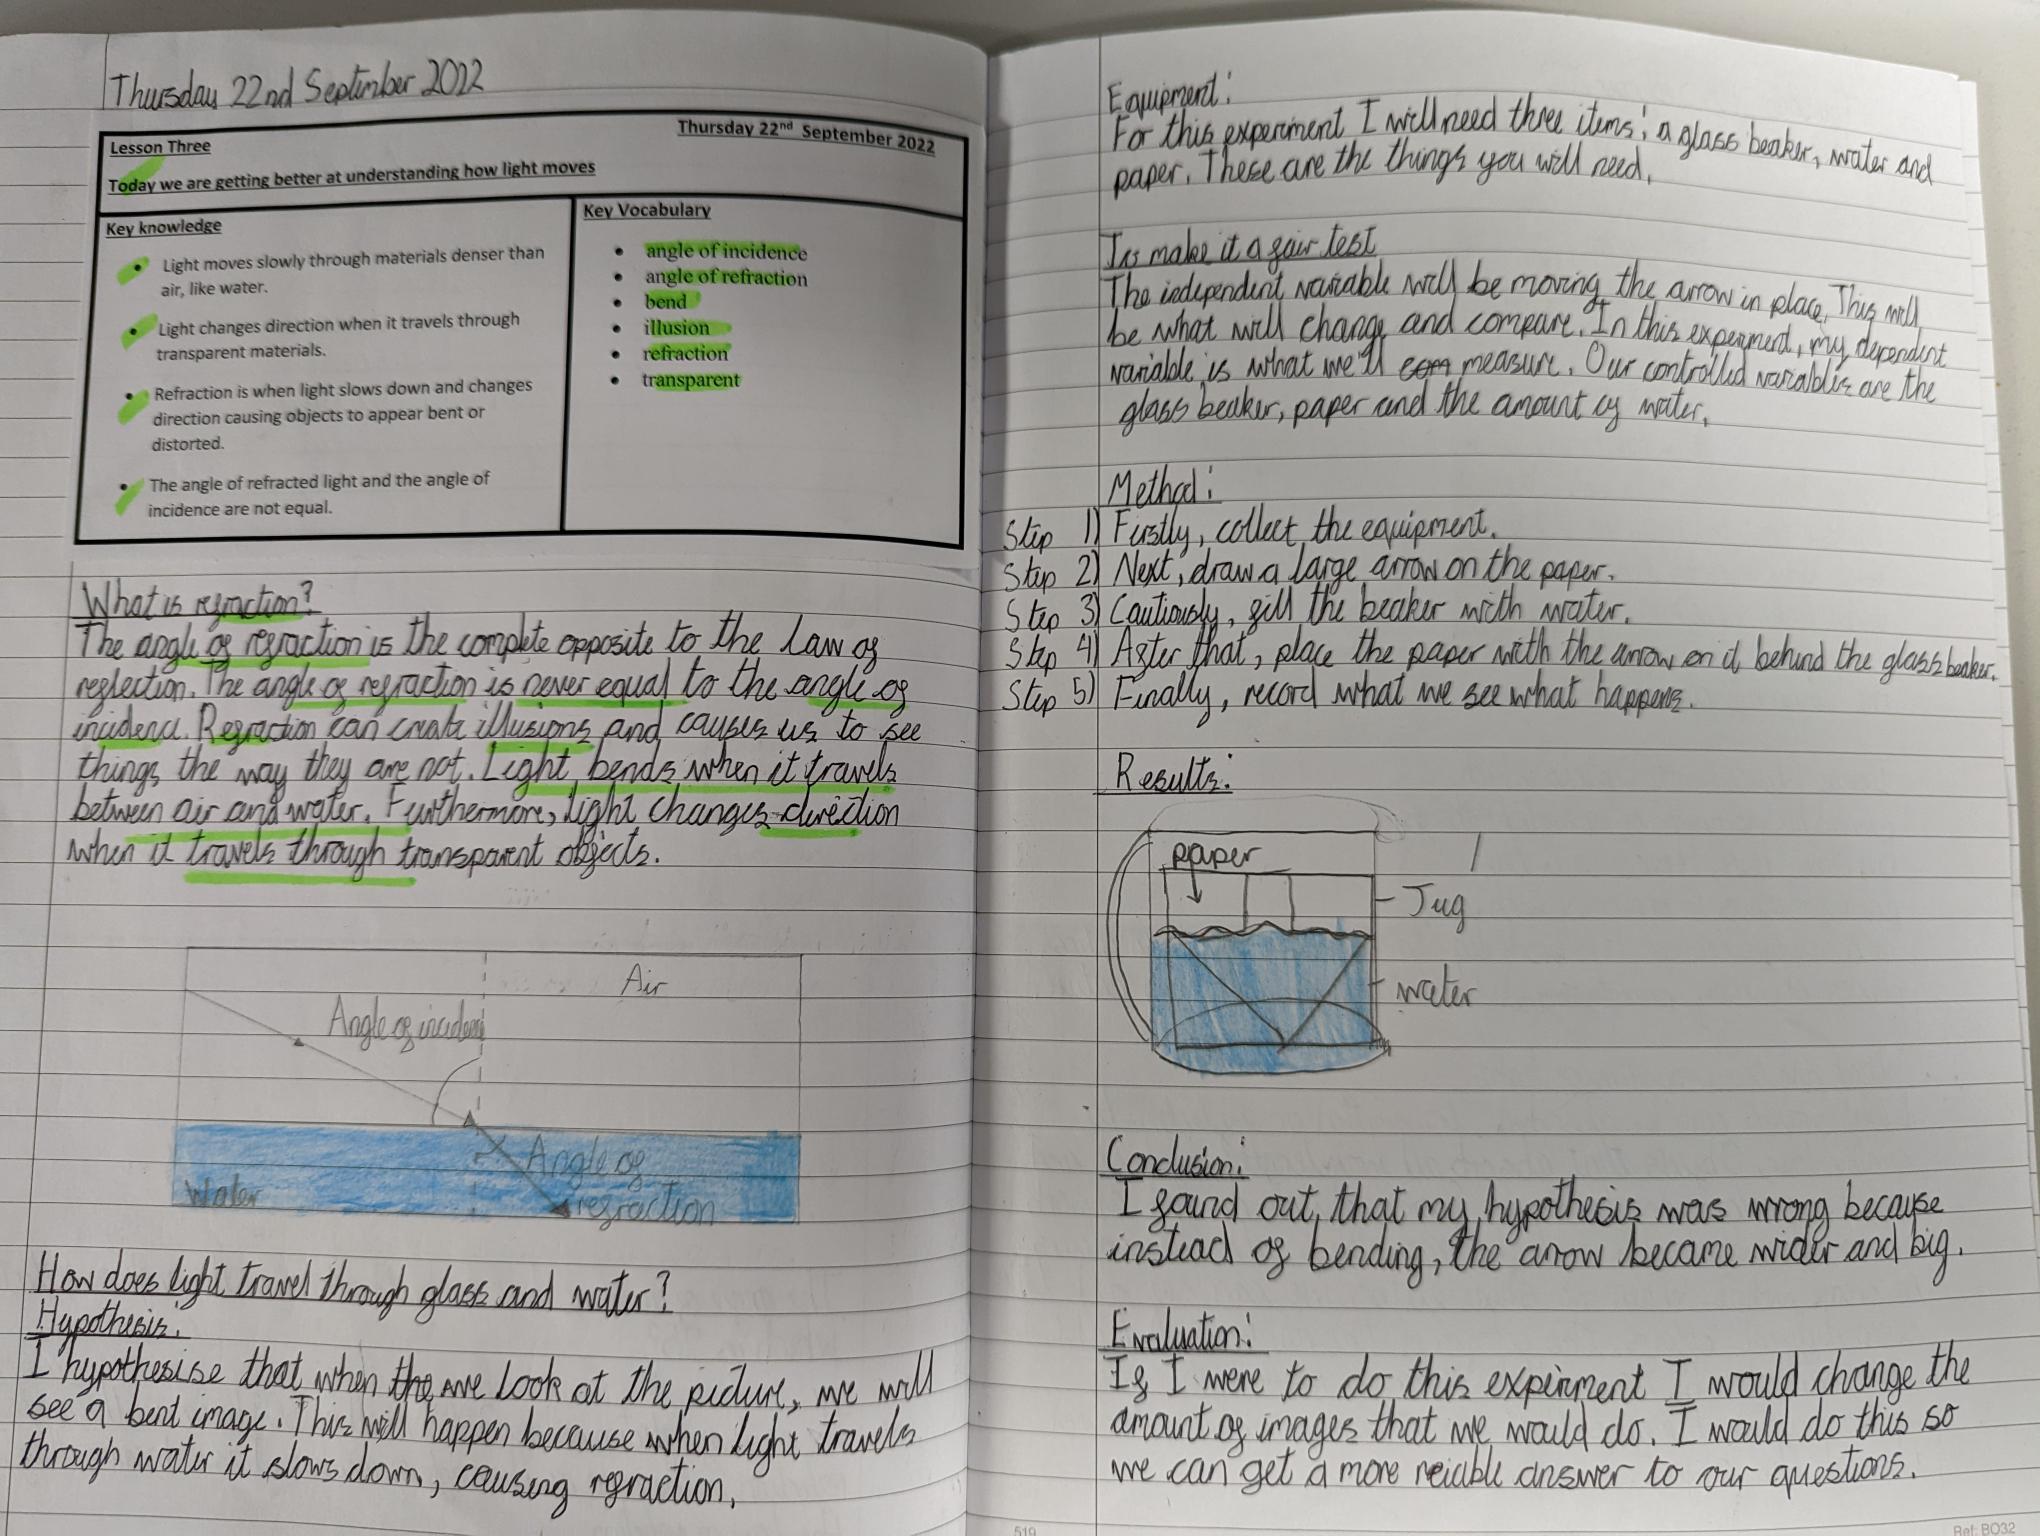 Thursday 22nd September 2022
Lesson Three
Thursday 22nd September 2022
Today we are getting better at understanding how light moves
Key knowledge
• Light moves slowly through materials denser than
air, like water.
• Light changes direction when it travels through
transparent materials.
• Refraction is when light slows down and changes
direction causing objects to appear bent or
distorted.
• The angle of refracted light and the angle of
incidence are not equal.
Key Vocabulary
• angle of incidence
• angle of refraction
• bend
• illusion
• refraction
• transparent
What is refraction?
The angle of refraction is the complete opposite to the Law of
reflection. The angle of refraction is never equal to the angle of
incidence. Refraction can create illusions and causes us to see
things the way they are not. Light bends when it travels
between air and water. Furthermore, light changes direction
when it travels through transparent objects.
Air
Angle of incidence
Angle of
refraction
Water
How does light travel through glass and water?
Hypothesis:
I hypothesise that when the we look at the picture, we will
see a bent image. This will happen because when light travels
through water it slows down, causing refraction.
Equipment:
For this experiment I will need three items: a glass beaker, water and
paper. These are the things you will need.
To make it a fair test
The independent variable will be moving the arrow in place. This will
be what will change and compare. In this experiment, my dependent
variable is what we'll com measure. Our controlled variables are the
glass beaker, paper and the amount of water.
Method:
Step 1) Firstly, collect the equipment.
Step 2) Next, draw a large arrow on the paper.
Step 3) Cautiously, fill the beaker with water.
Step 4) After that, place the paper with the arrow on it behind the glass beaker.
Step 5) Finally, record what we see what happens.
Results:
paper
Jug
water
Conclusion:
I found out, that my hypothesis was wrong because
instead of bending, the arrow became wider and big.
Evaluation:
If I were to do this experiment I would change the
amount of images that we would do. I would do this so
we can get a more reliable answer to our questions.
519
Ref: BO32